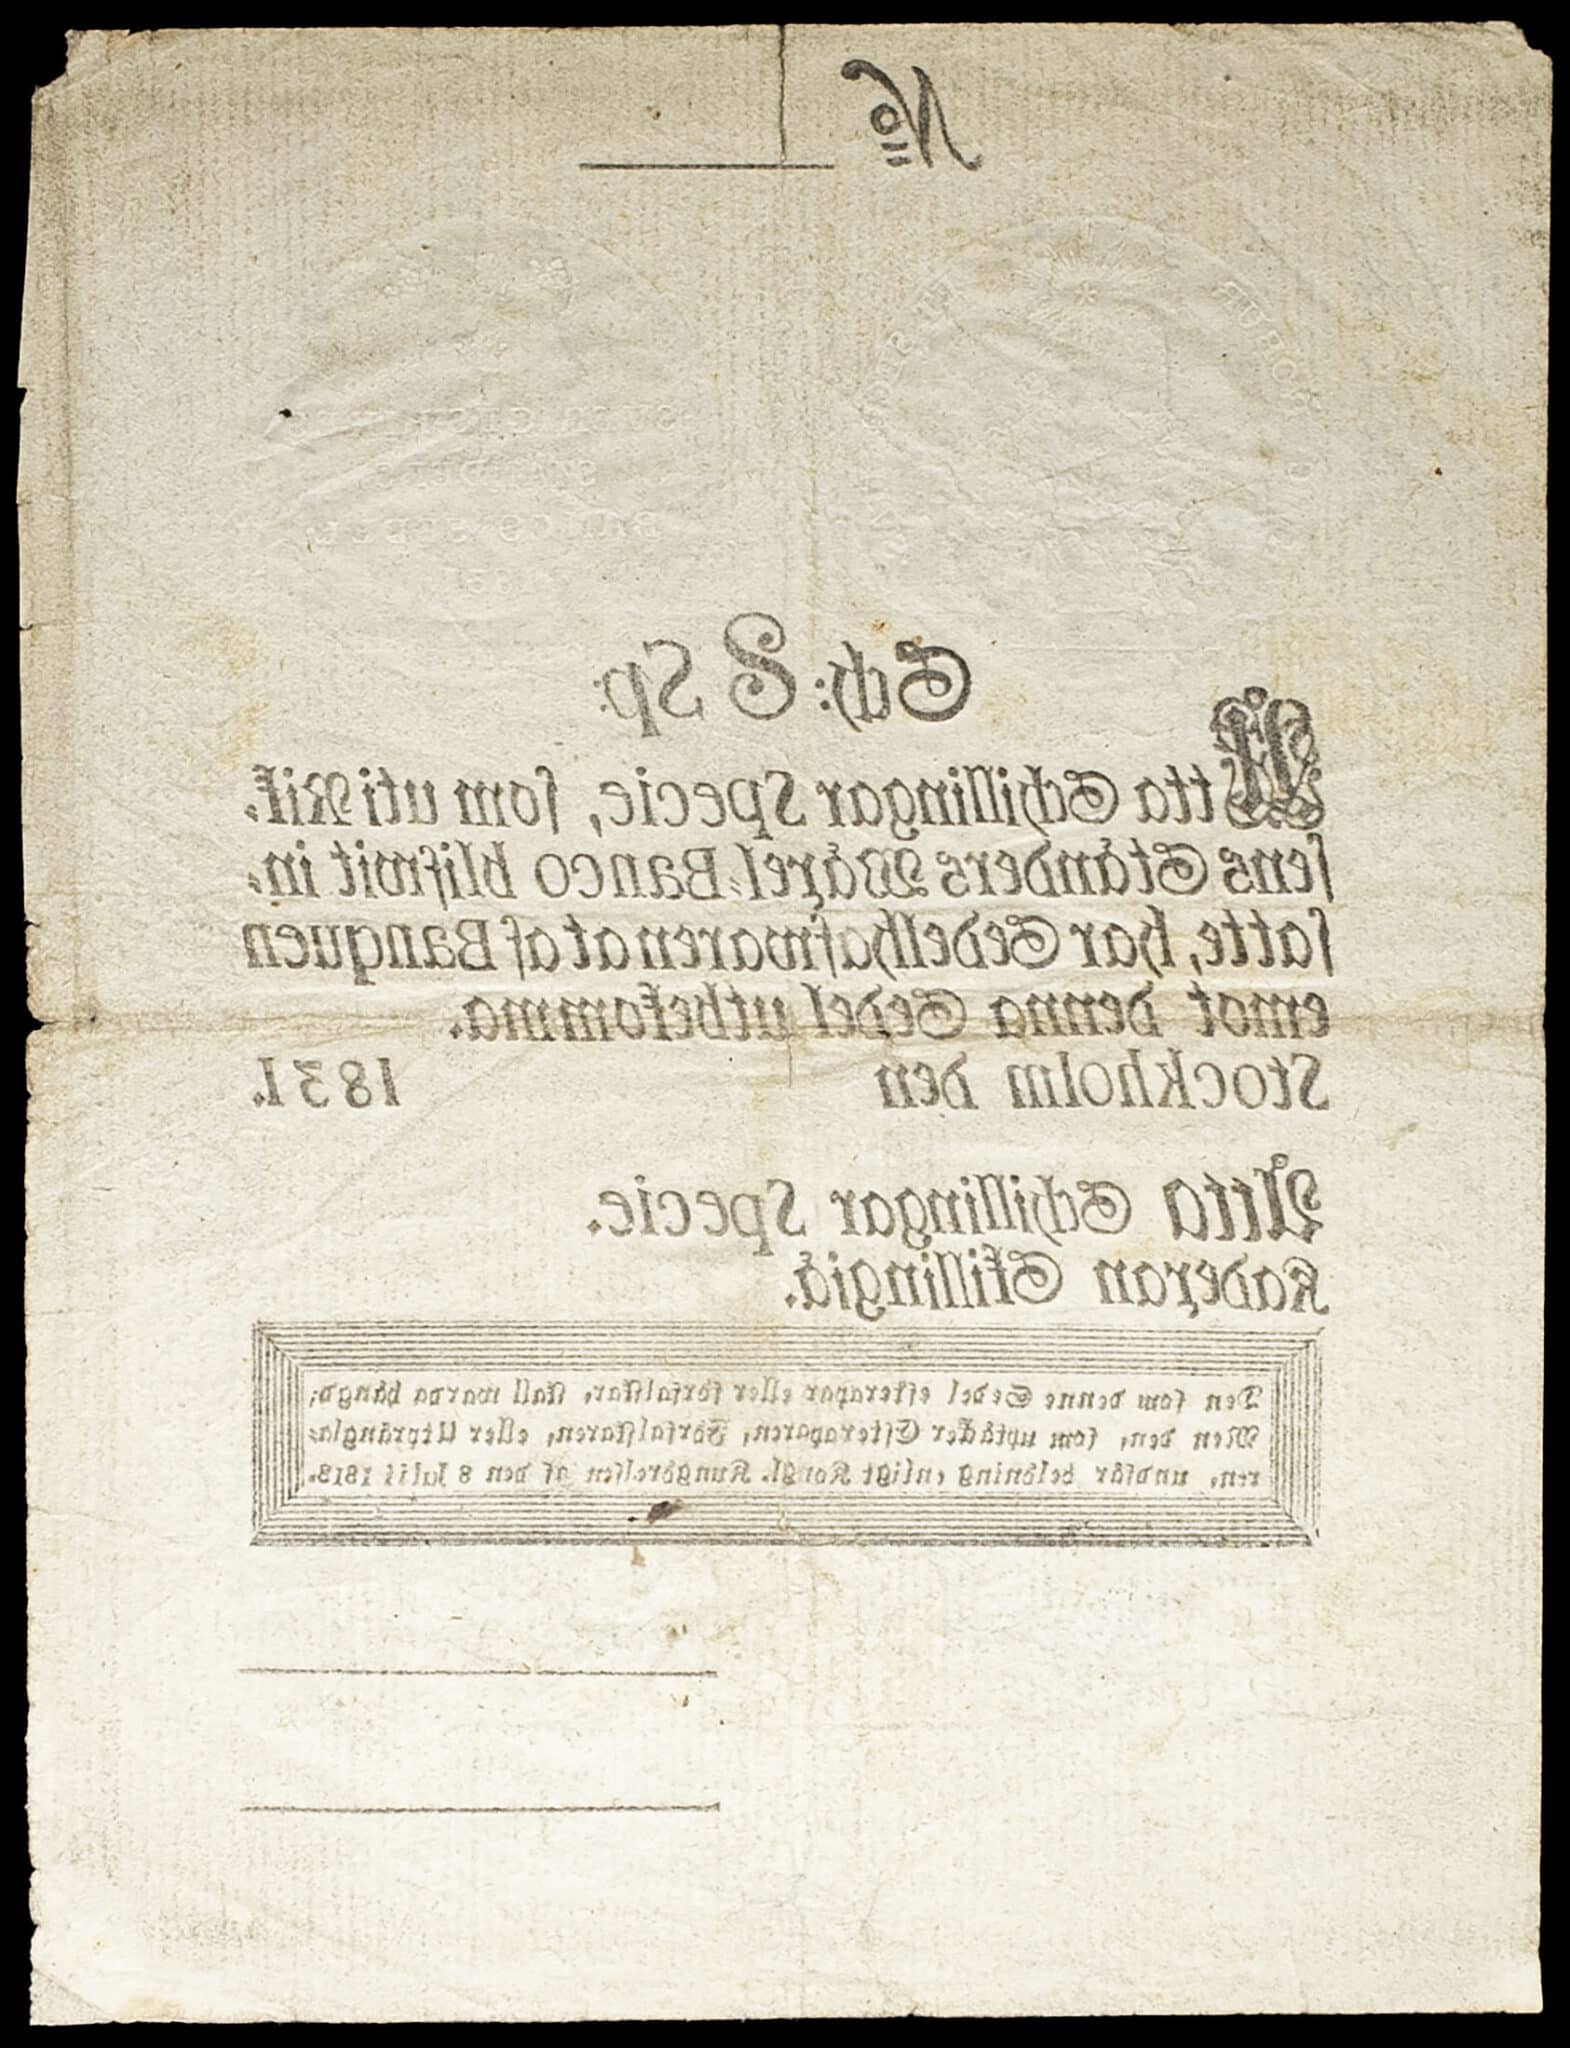 No
ROBUR
Sch: 8 Sp:
Åtta Schillingar Specie, som uti Rik-
sens Ständers Wäxel-Banco blifwit in-
satte, har Sedelhafwaren at af Banquen
emot denna Sedel utbekomma.
Stockholm den 1831.
Åtta Schillingar Specie.
Kadexan Skillingiä.
Den som denne Sedel efterapar eller förfalskar, skall warda hängd;
Men den, som uptäcker Efteraparen, Förfalskaren, eller Utprångla-
ren, undfår belöning enligt Kongl. Kungörelsen af den 8 Julii 1818.